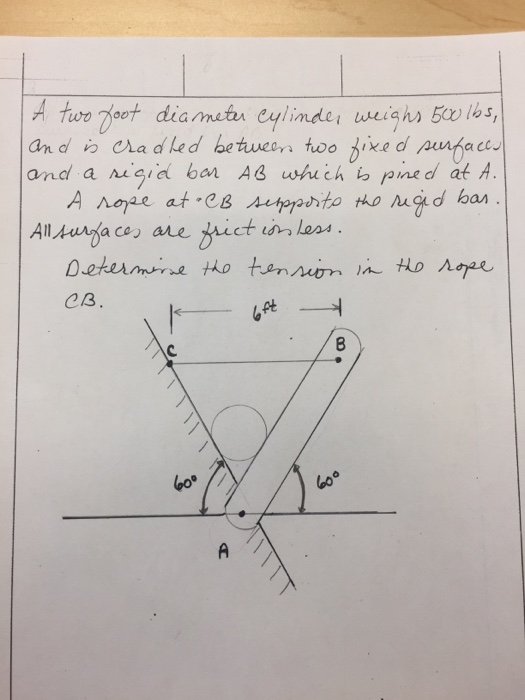 A two foot diameter cylinder weighs 500 lbs,
and is cradled between two fixed surfaces
and a rigid bar AB which is pined at A.
A rope at CB supports the rigid bar.
All surfaces are frictionless.
Determine the tension in the rope
CB.
6 ft
C
B
60°
60°
A